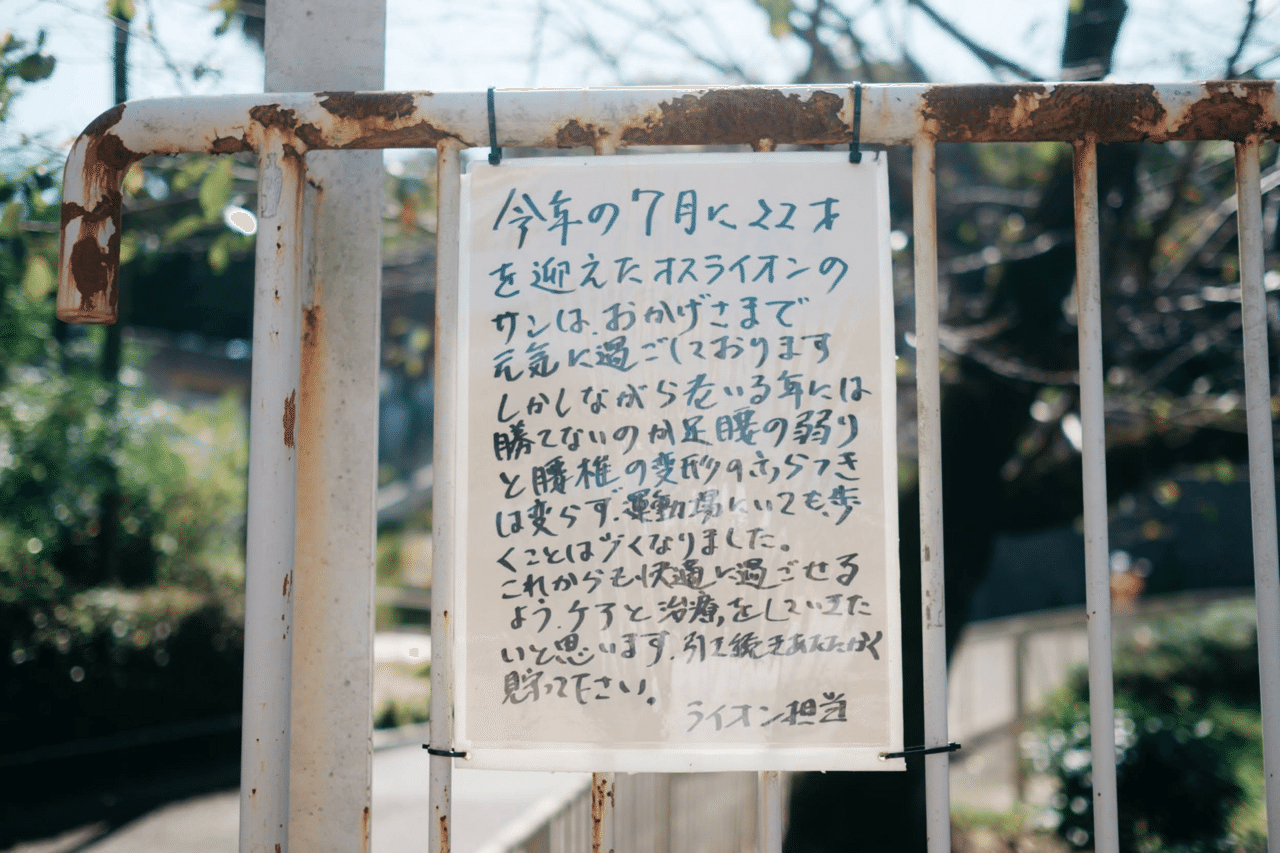 今年の7月に22才
を迎えたオスライオンの
サンは、おかげさまで
元気に過ごしております
しかしながら老いる年には
勝てないのか足腰の弱り
と腰椎の変形のふらつき
は変らず、運動場にいても、歩
くことは少くなりました。
これからも、快適に過ごせる
よう、ケアと治療をしていきた
いと思います。引き続きあたたかく
見守って下さい。
ライオン担当